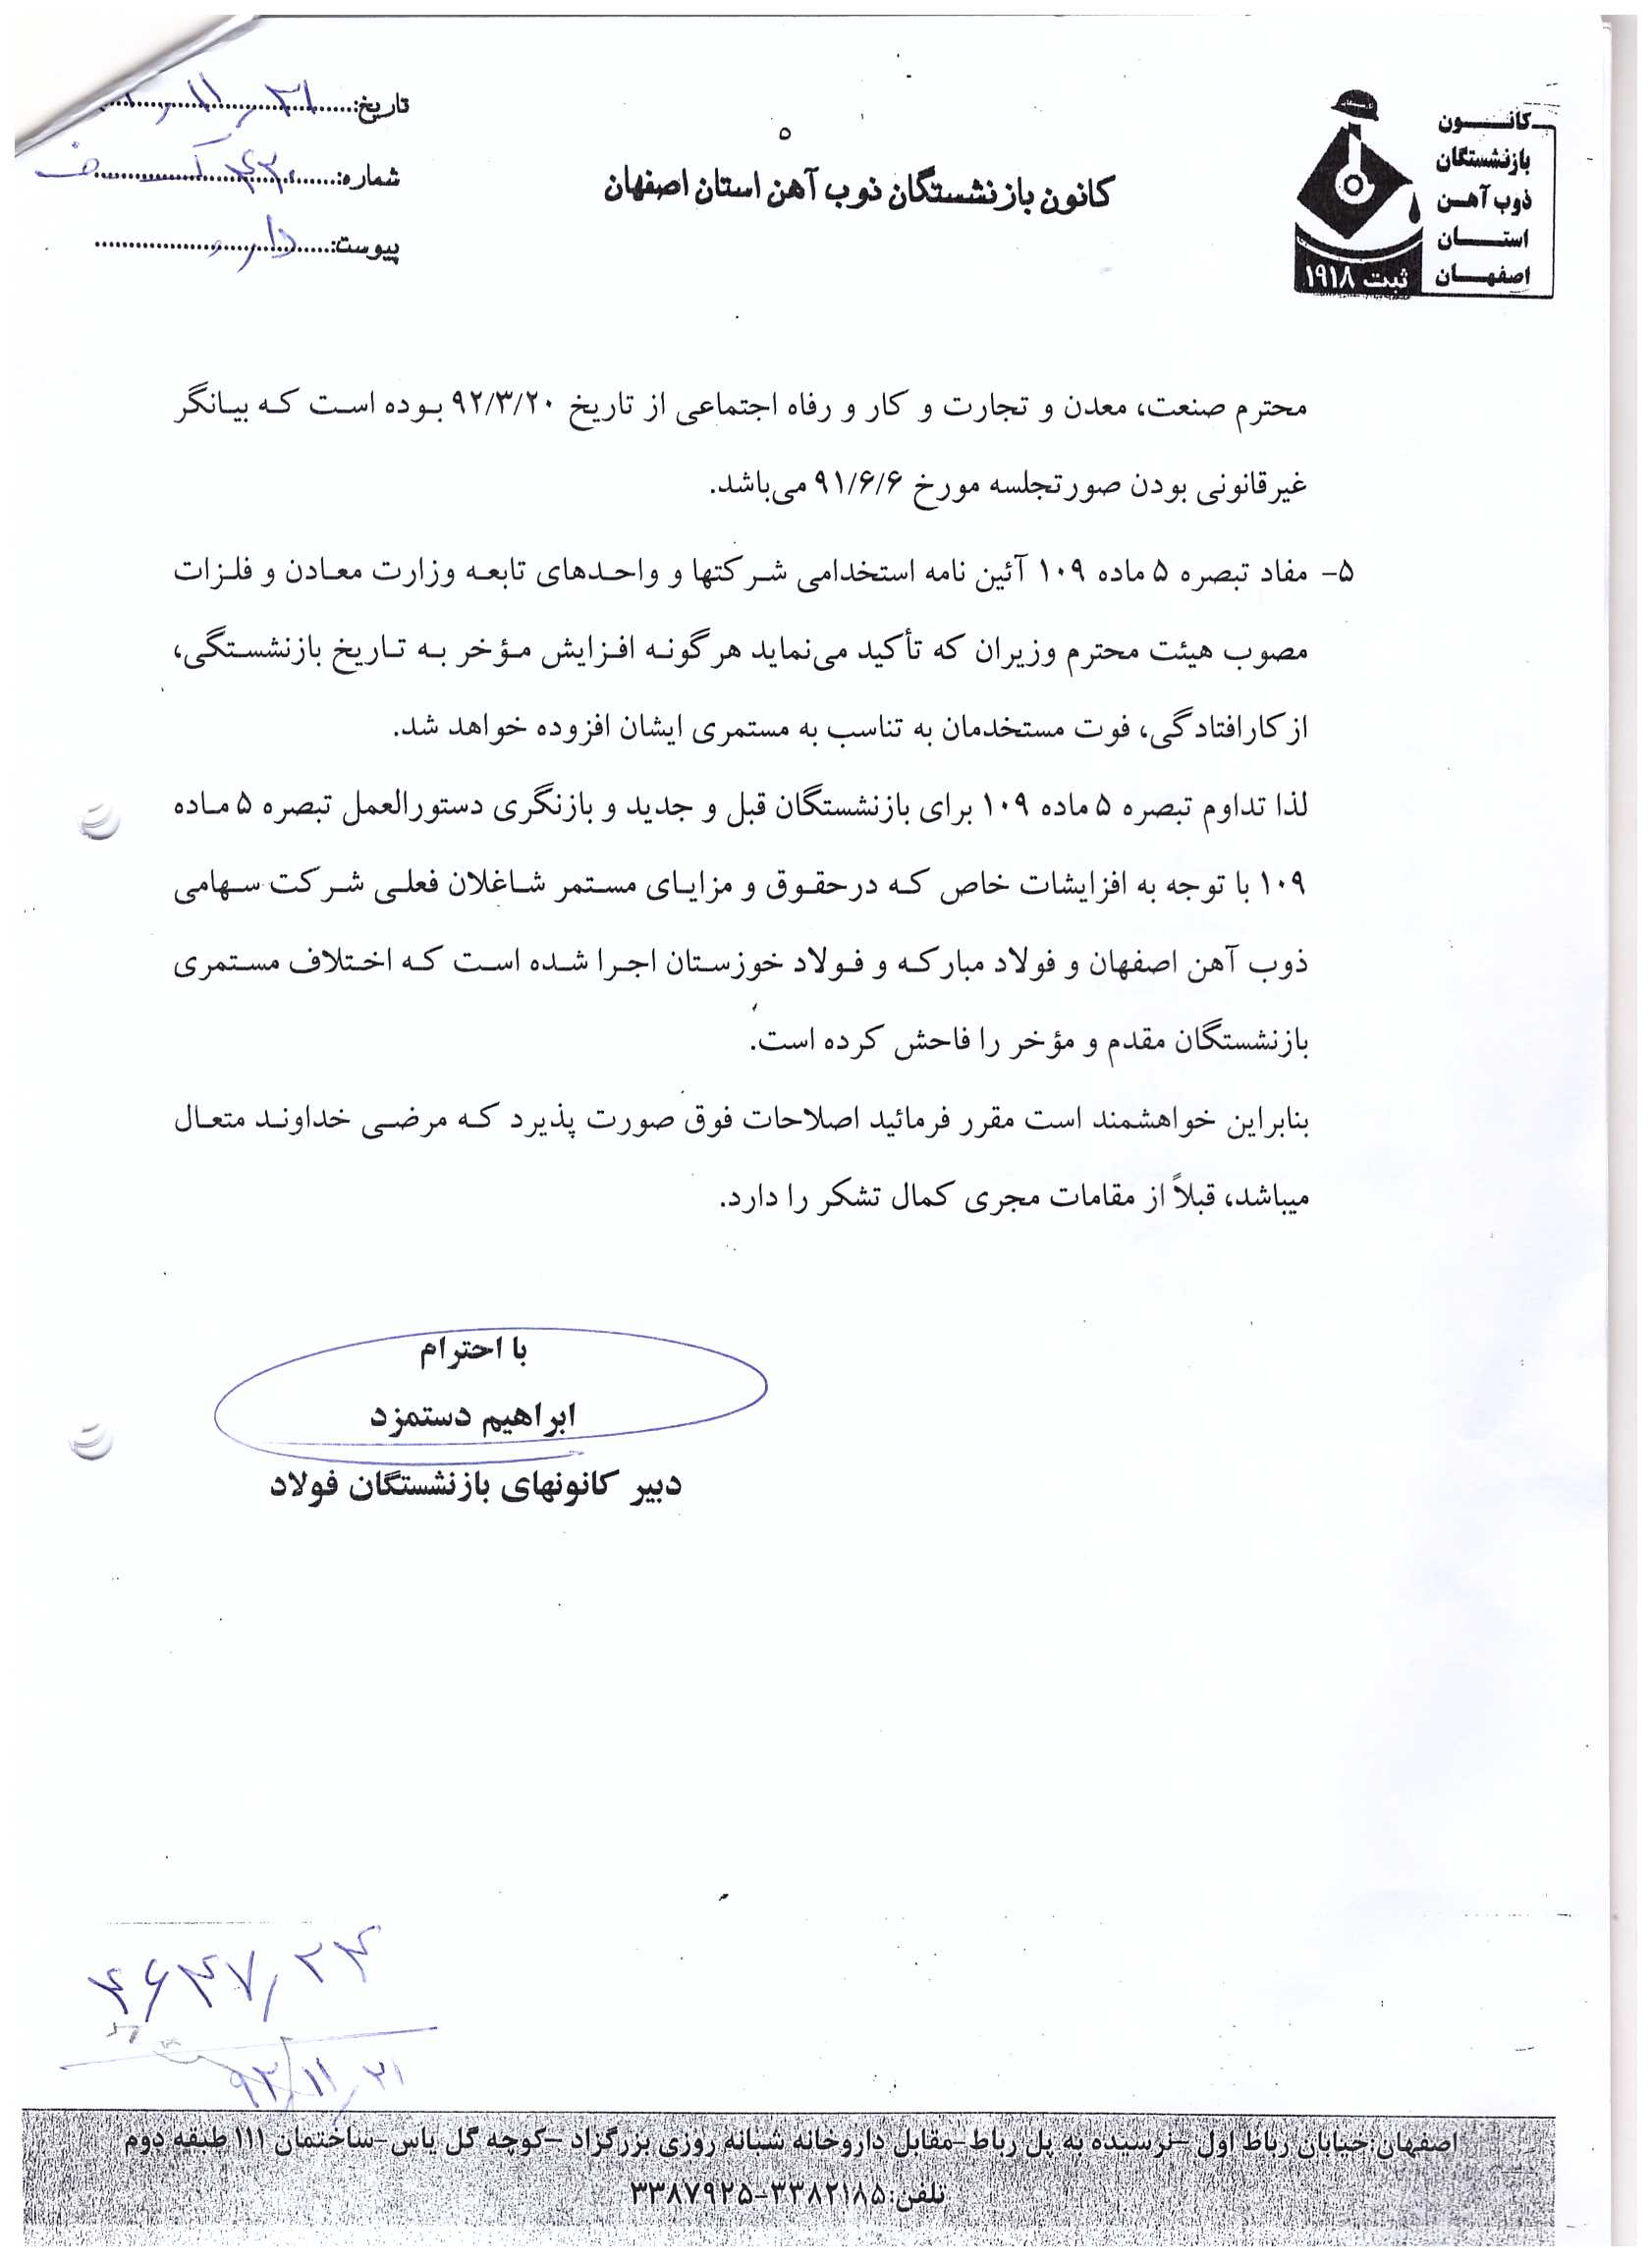 کانون
بازنشستگان
ذوب آهن
استان
اصفهان
ثبت ۱۹۱۸
۵
کانون بازنشستگان ذوب آهن استان اصفهان
تاریخ:
شماره:
پیوست: دارد
محترم صنعت، معدن و تجارت و کار و رفاه اجتماعی از تاریخ ۹۲/۳/۲۰ بوده است که بیانگر
غیرقانونی بودن صورتجلسه مورخ ۹۱/۶/۶ می‌باشد.
۵- مفاد تبصره ۵ ماده ۱۰۹ آئین نامه استخدامی شرکتها و واحدهای تابعه وزارت معادن و فلزات
مصوب هیئت محترم وزیران که تأکید می‌نماید هرگونه افزایش مؤخر به تاریخ بازنشستگی،
ازکارافتادگی، فوت مستخدمان به تناسب به مستمری ایشان افزوده خواهد شد.
لذا تداوم تبصره ۵ ماده ۱۰۹ برای بازنشستگان قبل و جدید و بازنگری دستورالعمل تبصره ۵ ماده
۱۰۹ با توجه به افزایشات خاص که درحقوق و مزایای مستمر شاغلان فعلی شرکت سهامی
ذوب آهن اصفهان و فولاد مبارکه و فولاد خوزستان اجرا شده است که اختلاف مستمری
بازنشستگان مقدم و مؤخر را فاحش کرده است.
بنابراین خواهشمند است مقرر فرمائید اصلاحات فوق صورت پذیرد که مرضی خداوند متعال
میباشد، قبلاً از مقامات مجری کمال تشکر را دارد.
با احترام
ابراهیم دستمزد
دبیر کانونهای بازنشستگان فولاد
۹۲/۱۱/۲۱
اصفهان:خیابان رباط اول –نرسیده به پل رباط–مقابل داروخانه شبانه روزی بزرگزاد –کوچه گل یاس–ساختمان ۱۱۱ طبقه دوم
تلفن:۳۳۸۲۱۸۵-۳۳۸۷۹۲۵